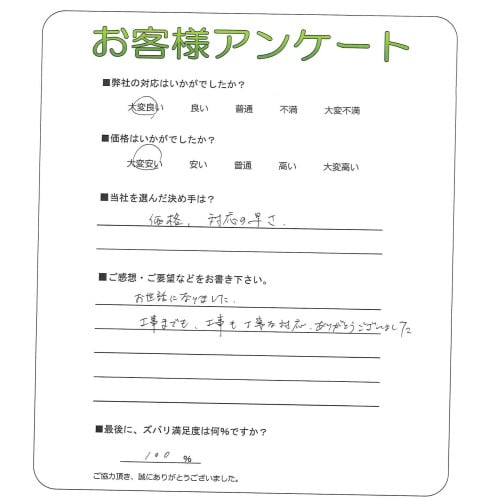 お客様アンケート
■弊社の対応はいかがでしたか？
大変良い 良い 普通 不満 大変不満
■価格はいかがでしたか？
大変安い 安い 普通 高い 大変高い
■当社を選んだ決め手は？
価格、対応の早さ.
■ご感想・ご要望などをお書き下さい。
お世話になりました.
工事までも、工事も丁寧な対応、ありがとうございました
■最後に、ズバリ満足度は何%ですか？
100 %
ご協力頂き、誠にありがとうございました。